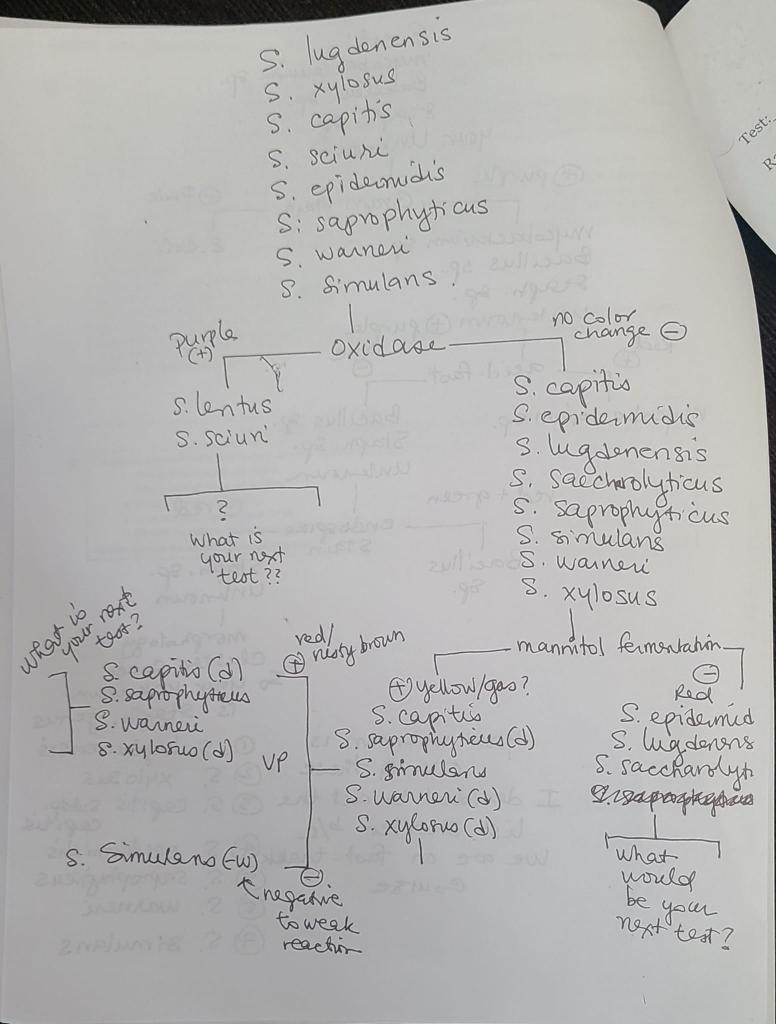 S. lugdenensis
S. xylosus
S. capitis
S. sciuri
S. epidermidis
S. saprophyticus
S. warneri
S. simulans.
Test:
purple
(+)
oxidase
no color
change ⊖
S. lentus
S. sciuri
?
What is
your next
test??
S. capitis
S. epidermidis
S. lugdenensis
S. saccharolyticus
S. saprophyticus
S. simulans
S. warneri
S. xylosus
mannitol fermentation
⊕ yellow/gas?
S. capitis
S. saprophyticus (d)
S. simulans
S. warneri (d)
S. xylosus (d)
⊖
Red
S. epidermid
S. lugdenens
S. saccharolyti
what
would
be your
next test?
VP
⊕ red/
rusty brown
S. capitis (d)
S. saprophyticus
S. warneri
S. xylosus (d)
what is
your next
test?
S. simulans (-w) ⊖
negative
to weak
reaction